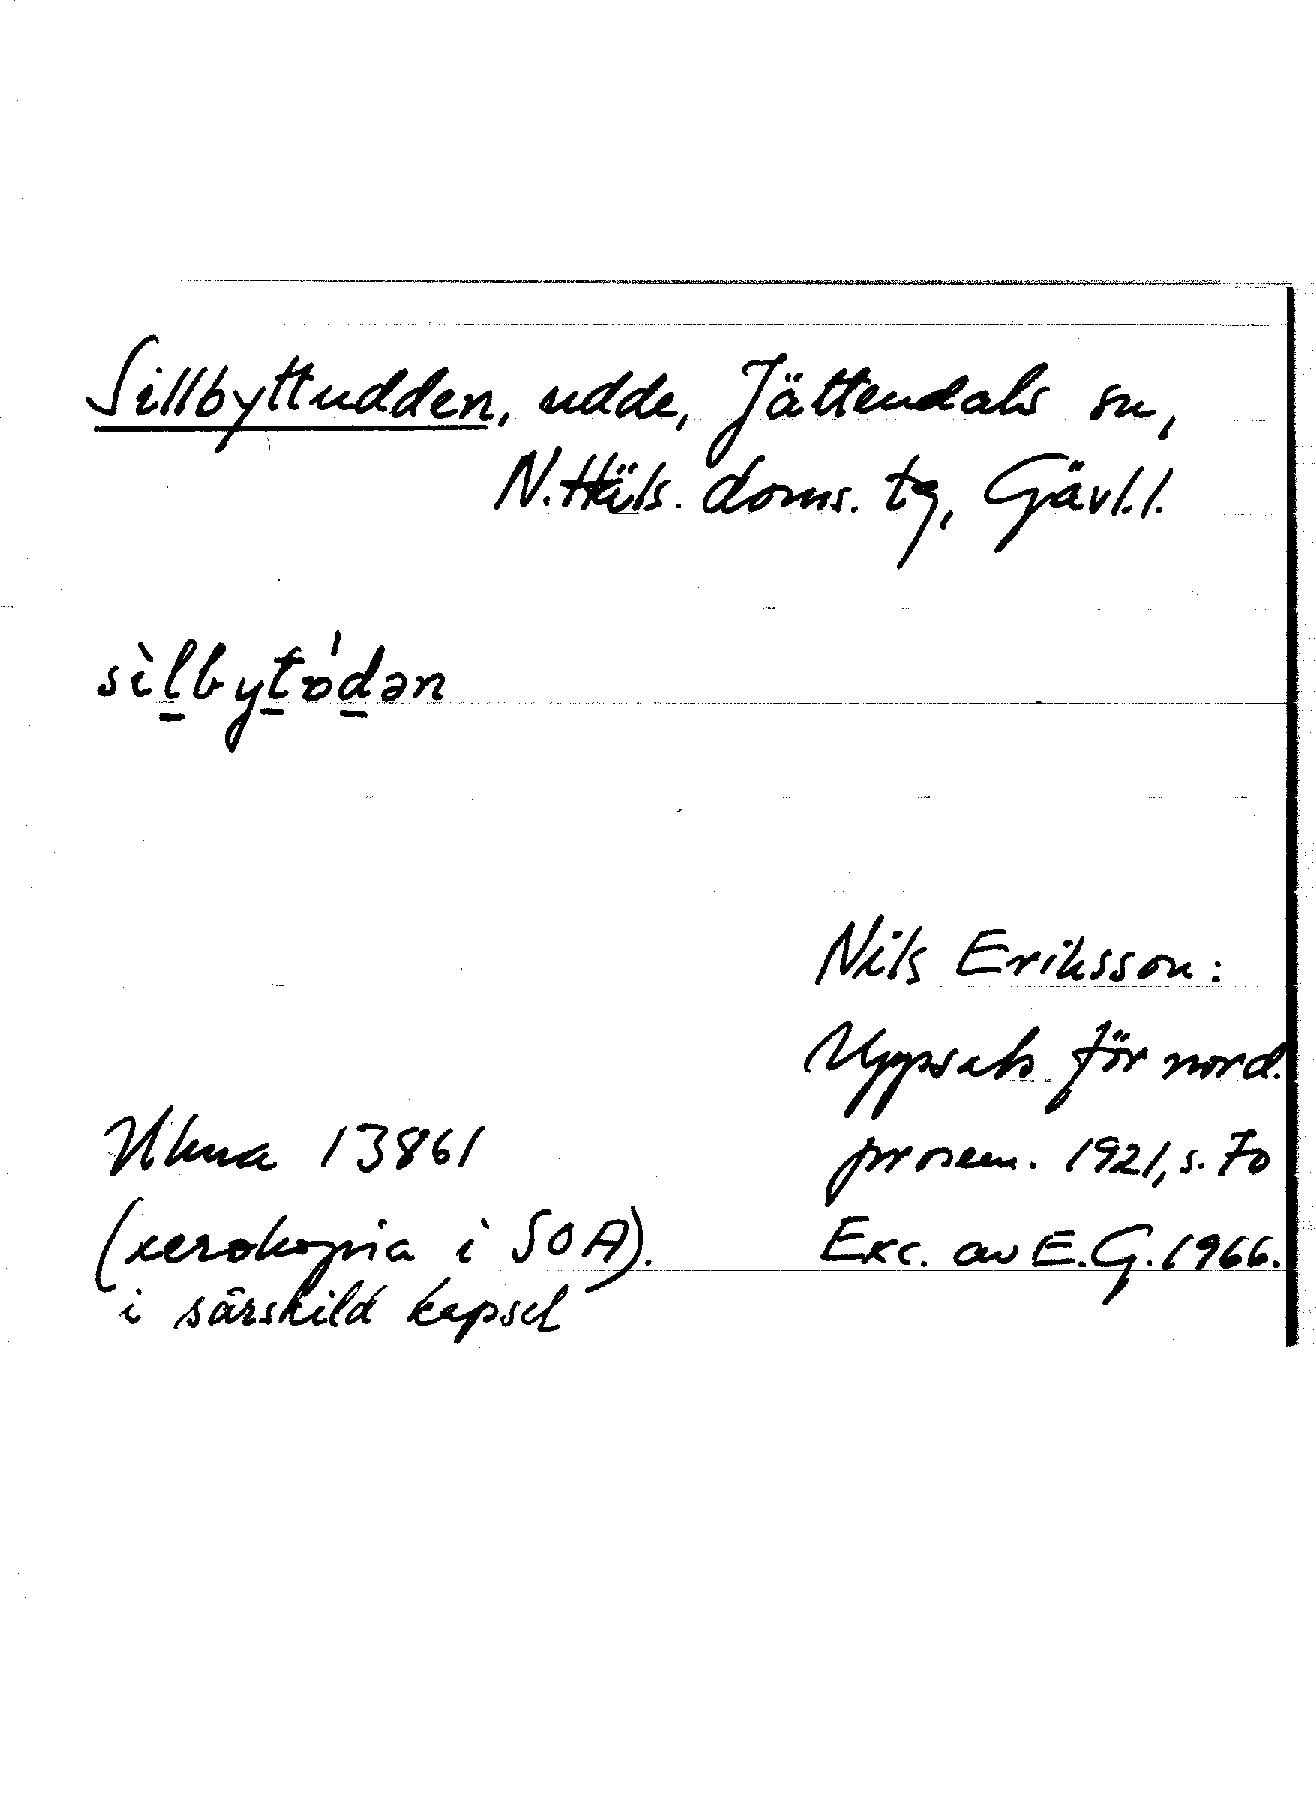 Sillbyttudden, udde, Jättendals sn,
N. Häls. doms. tg, Gävl. l.
sìl̠byt̠ód̠ən
Nils Eriksson:
Uppsats för nord.
prosem. 1921, s. 70
Exc. av E.G. 1966.
Ulma 13861
(xerokopia i SOA).
i särskild kapsel